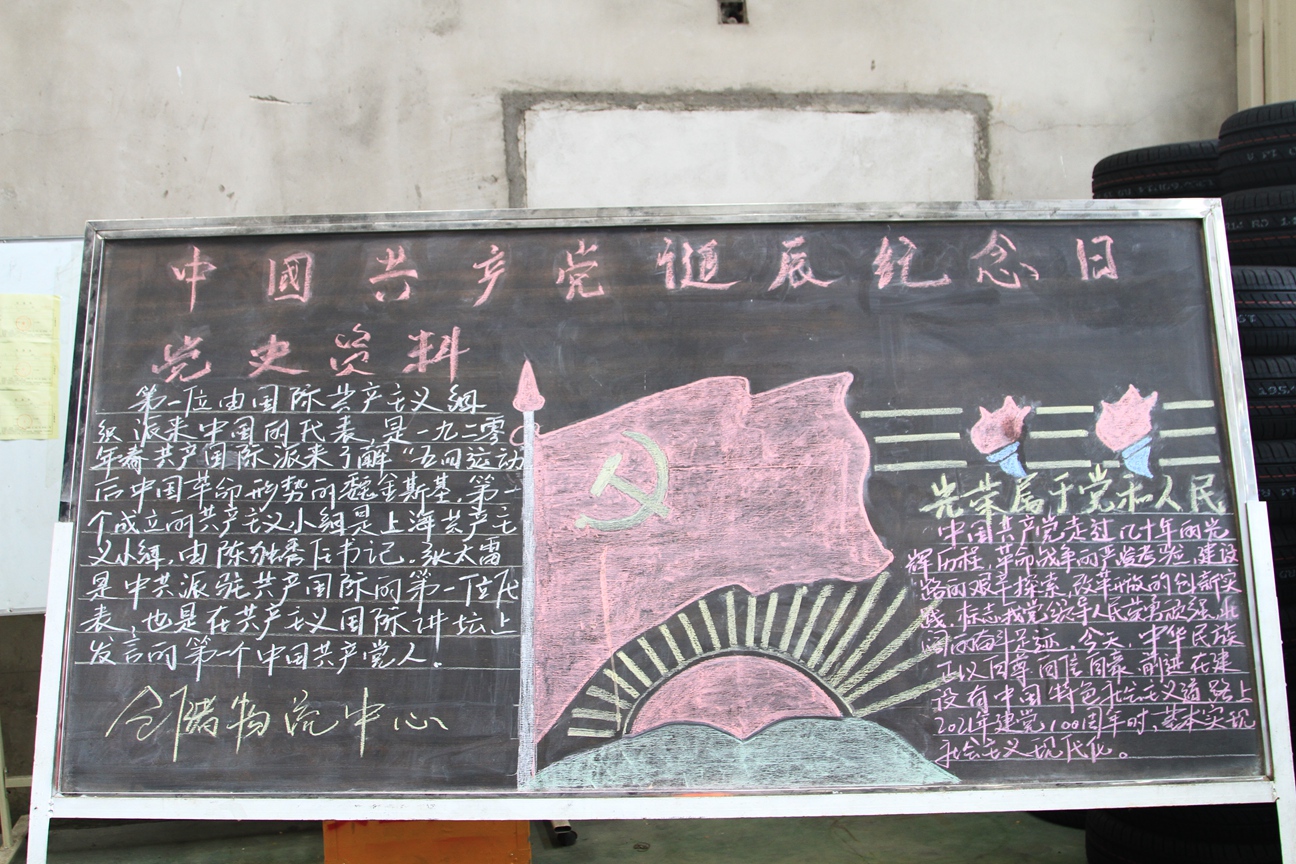 中國共产党诞辰纪念日
党史资料
第一位由国际共产主义组
织派来中国的代表是一九二零
年春共产国际派来了解“五四运动
后中国革命形势的魏金斯基.第一
个成立的共产主义小组是上海共产主
义小组,由陈独秀任书记.张太雷
是中共派驻共产国际的第一位代
表,也是在共产主义国际讲坛上
发言的第一个中国共产党人.
仓储物流中心
光荣属于党和人民
中国共产党走过几十年的光
辉历程,革命战争的严峻考验,建设
路的艰辛探索,改革开放的创新实
践,标志我党 人民 壮
阔的奋斗足迹.今天,中华民族
正以自尊自信自豪 前进在建
设有中国特色社会主义道路上
2021年建党100周年时,基本实现
社会主义现代化。